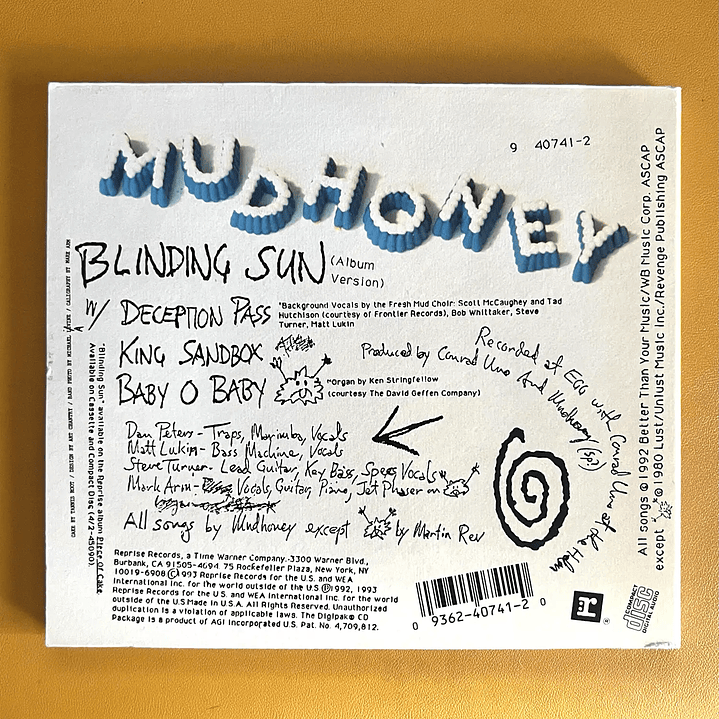 9 40741-2
MUDHONEY
BLINDING SUN (Album
Version)
W/ DECEPTION PASS
*Background Vocals by the Fresh Mud Choir: Scott McCaughey and Tad
Hutchison (courtesy of Frontier Records), Bob Whittaker, Steve
Turner, Matt Lukin
KING SANDBOX
BABY O BABY
**Organ by Ken Stringfellow
(courtesy The David Geffen Company)
Produced by Conrad Uno And Mudhoney (sp?)
Recorded at EGG with Conrad Uno at the Helm
Dan Peters - Traps, Marimba, Vocals
Matt Lukin - Bass Machine, Vocals
Steve Turner - Lead Guitar, Key Bass, Vocals
Mark Arm - Vocals, Guitar, Piano, Jet Phaser on
All songs by Mudhoney except by Martin Rev
Reprise Records, a Time Warner Company.-3300 Warner Blvd.,
Burbank, CA 91505-4694. 75 Rockefeller Plaza, New York, NY
10019-6908 ©1993 Reprise Records for the U.S. and WEA
International Inc. for the world outside of the U.S ℗1992, 1993
Reprise Records for the U.S. and WEA International Inc. for the world
outside of the U.S Made in U.S.A. All Rights Reserved. Unauthorized
duplication is a violation of applicable laws. The Digipak® CD
Package is a product of AGI Incorporated U.S. Pat. No. 4,709,812.
0 9362-40741-2 0
r ®
COMPACT
disc
DIGITAL AUDIO
"Blinding Sun" available on the Reprise album Piece Of Cake.
Available on Cassette and Compact Disc (4/2-45090).
All songs ©1992 Better Than Your Music/WB Music Corp. ASCAP
except ©1980 Lust/Unlust Music Inc./Revenge Publishing ASCAP